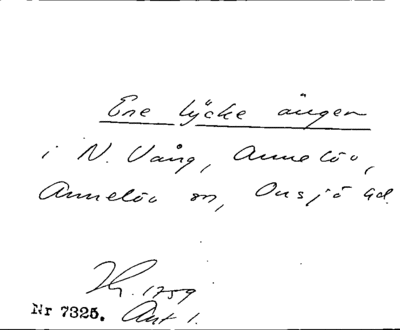 Ene lycke ängen
i N. Vång, Annelöv,
Annelöv sn, Onsjö hd.
1759
Nr 7325. Akt 1.